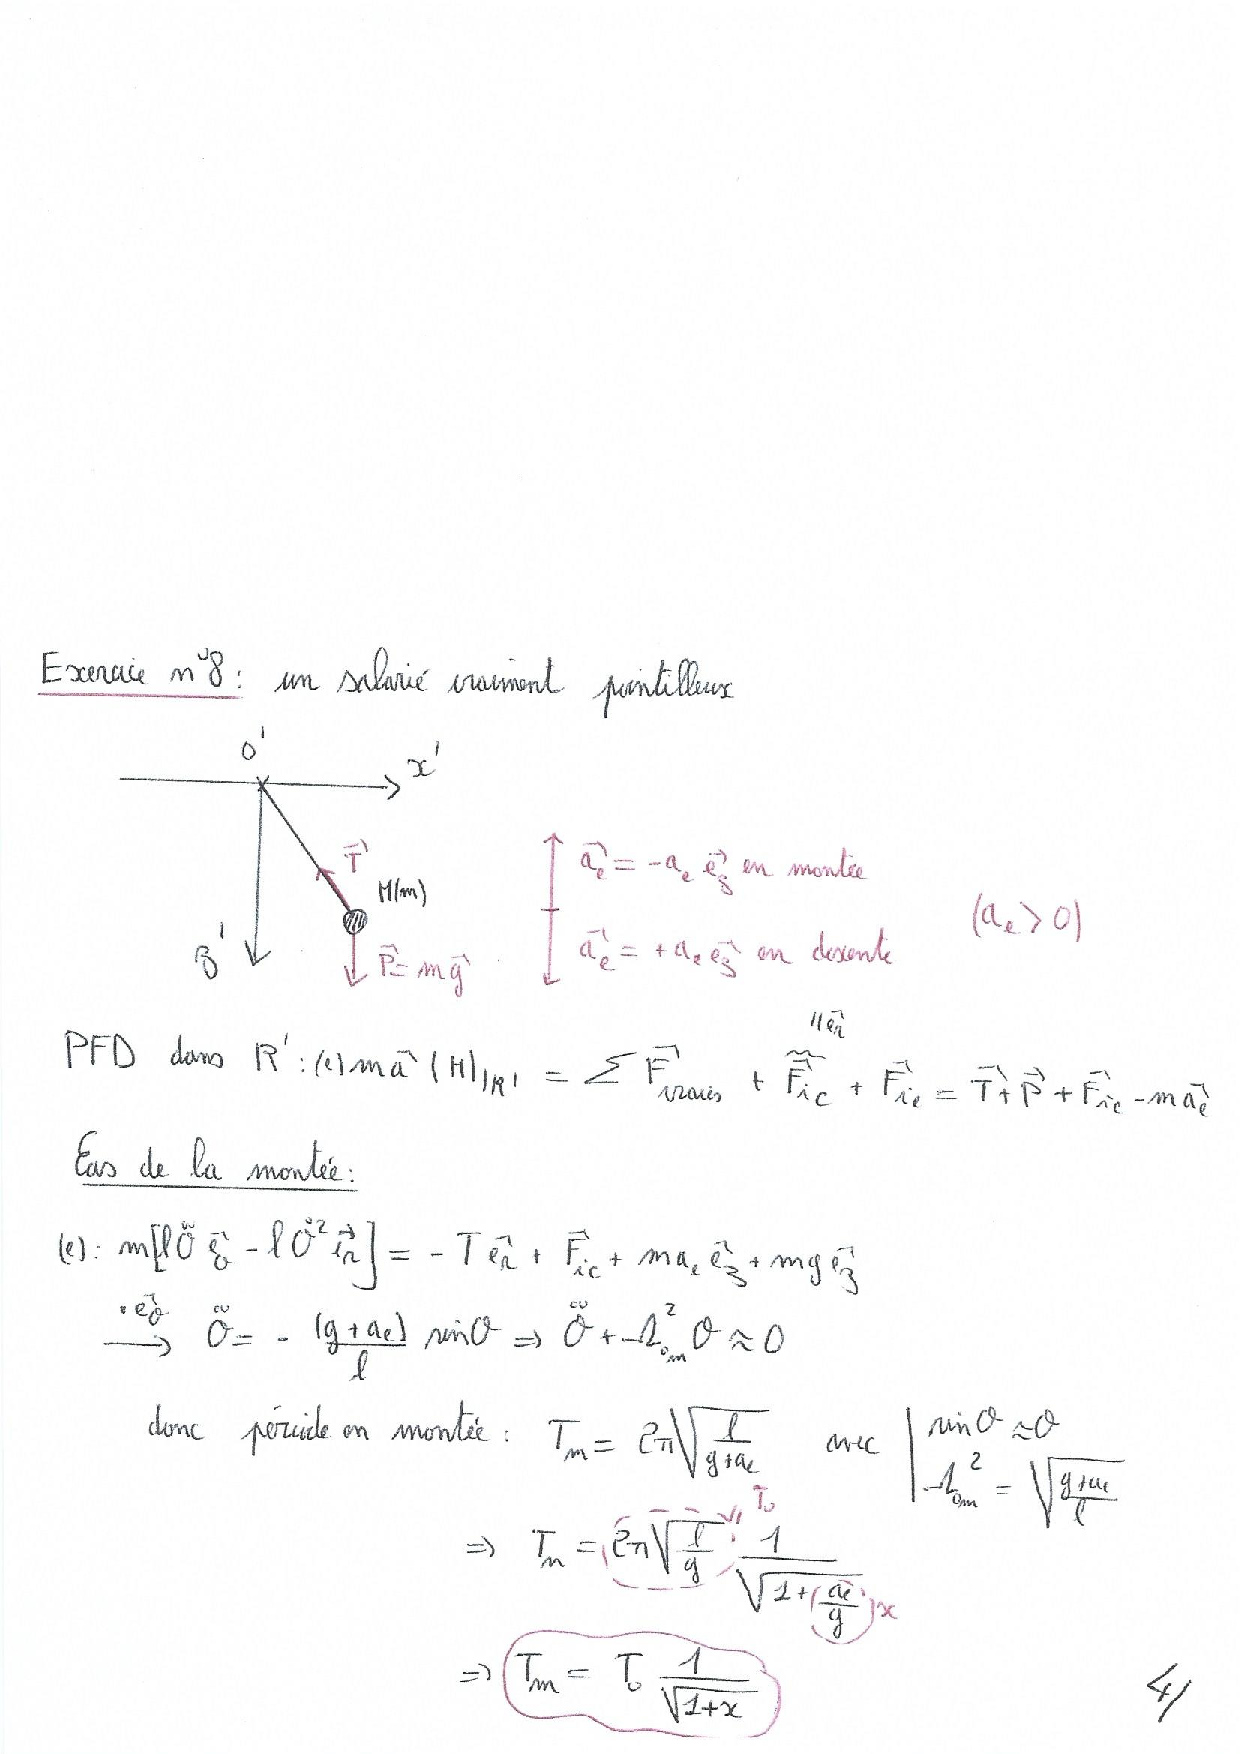 Exercice n°8 : un salarié vraiment pointilleux
O'
x'
T⃗
M(m)
P⃗ = mg⃗
z'
a⃗_e = -a_e e⃗_z en montée
(a_e > 0)
a⃗_e = +a_e e⃗_z en descente
// e⃗_r
PFD dans R' : (e) m a⃗(M)_{/R'} = Σ F⃗_{vraies} + F⃗_{ic} + F⃗_{ie} = T⃗ + P⃗ + F⃗_{ic} - m a⃗_e
Cas de la montée :
(e) : m[lθ̈ e⃗_θ - lθ̇² e⃗_r] = -T e⃗_r + F⃗_{ic} + m a_e e⃗_z + mg e⃗_z
· e⃗_θ → θ̈ = - (g + a_e)/l sinθ ⇒ θ̈ + Ω_{0m}² θ ≈ 0
donc période en montée : T_m = 2π √(l/(g+a_e)) avec | sinθ ≈ θ
Ω_{0m}² = √((g+a_e)/l)
⇒ T_m = 2π √(l/g) · 1/√(1 + (a_e/g))
T_0
x
⇒ T_m = T_0 1/√(1+x)
4/